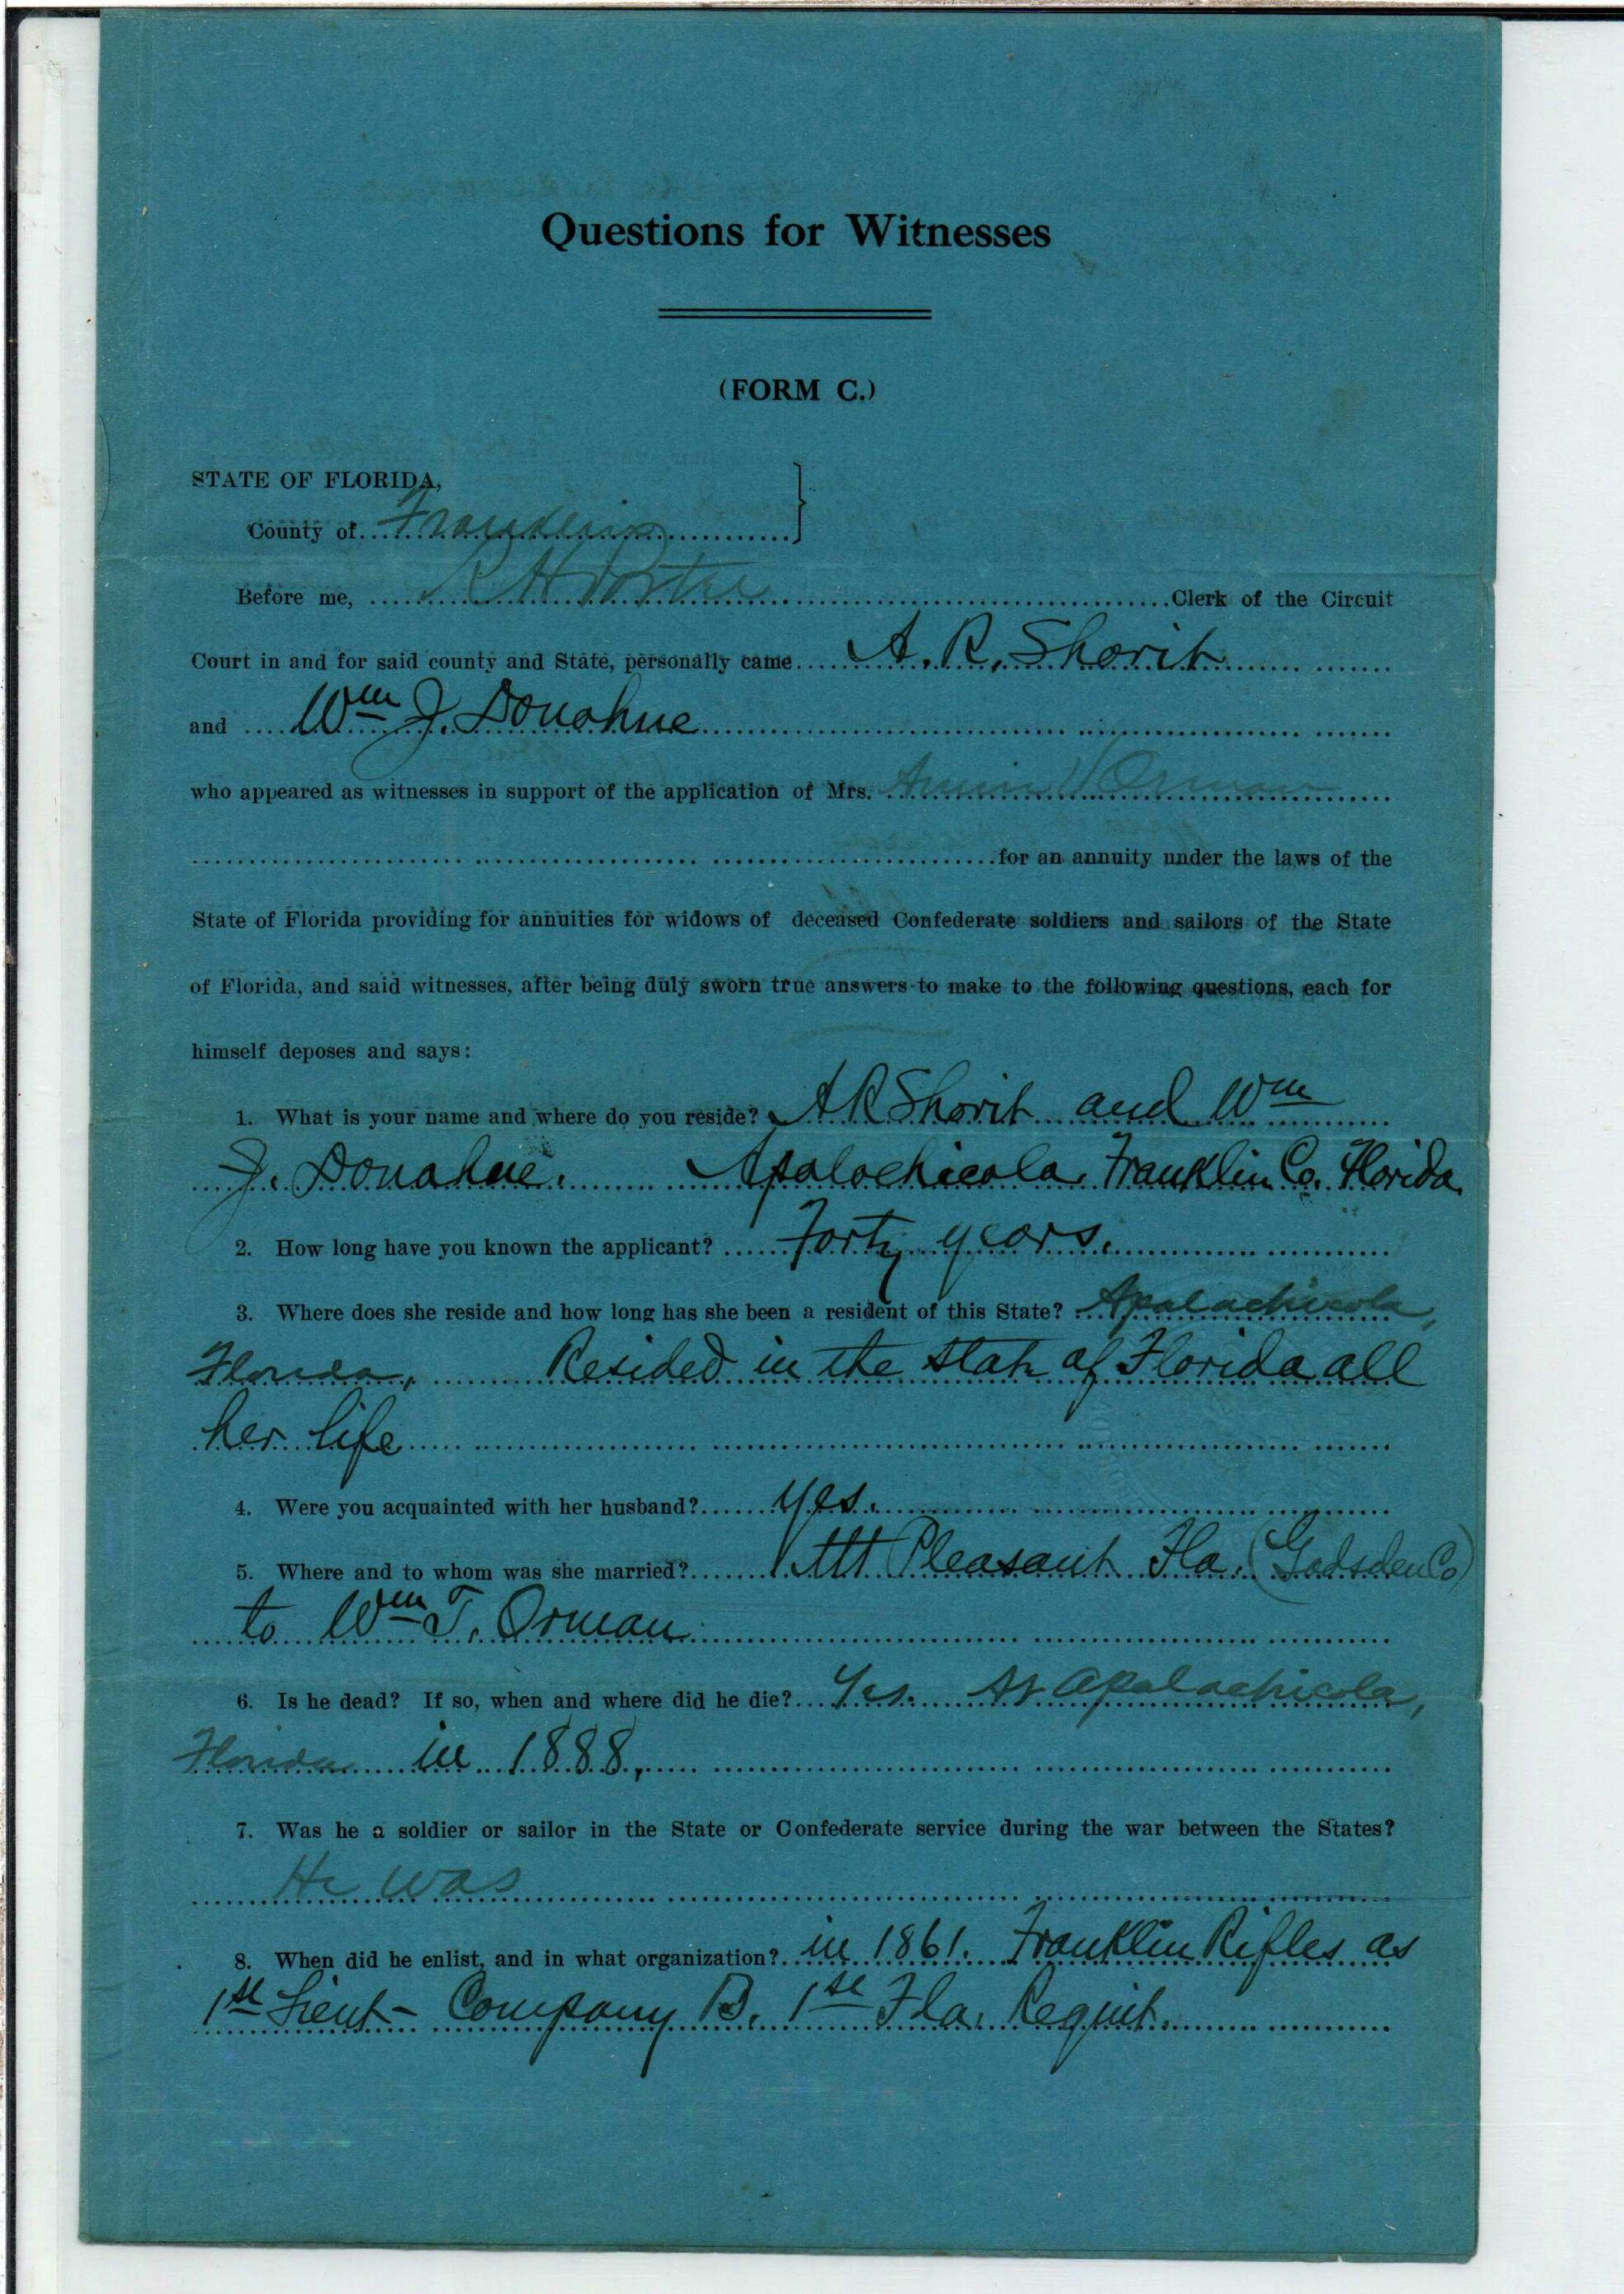 Questions for Witnesses
(FORM C.)
STATE OF FLORIDA,
County of Franklin
Before me, R H Porter Clerk of the Circuit
Court in and for said county and State, personally came A. R. Shorit
and Wm J. Donahue
who appeared as witnesses in support of the application of Mrs. Annin V Orman
for an annuity under the laws of the
State of Florida providing for annuities for widows of deceased Confederate soldiers and sailors of the State
of Florida, and said witnesses, after being duly sworn true answers to make to the following questions, each for
himself deposes and says:
1. What is your name and where do you reside? A R Shorit and Wm
J. Donahue. Apalachicola, Franklin Co. Florida.
2. How long have you known the applicant? Forty years.
3. Where does she reside and how long has she been a resident of this State? Apalachicola,
Florida, Resided in the State of Florida all
her life
4. Were you acquainted with her husband? Yes.
5. Where and to whom was she married? Mt Pleasant Fla. (Gadsden Co)
to Wm T. Orman
6. Is he dead? If so, when and where did he die? Yes. At Apalachicola,
Florida in 1888,
7. Was he a soldier or sailor in the State or Confederate service during the war between the States?
He was
8. When did he enlist, and in what organization? in 1861. Franklin Rifles as
1st Lieut - Company B. 1st Fla. Regmt.